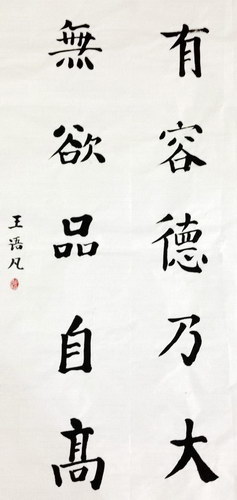 有容德乃大
無欲品自高
王语凡